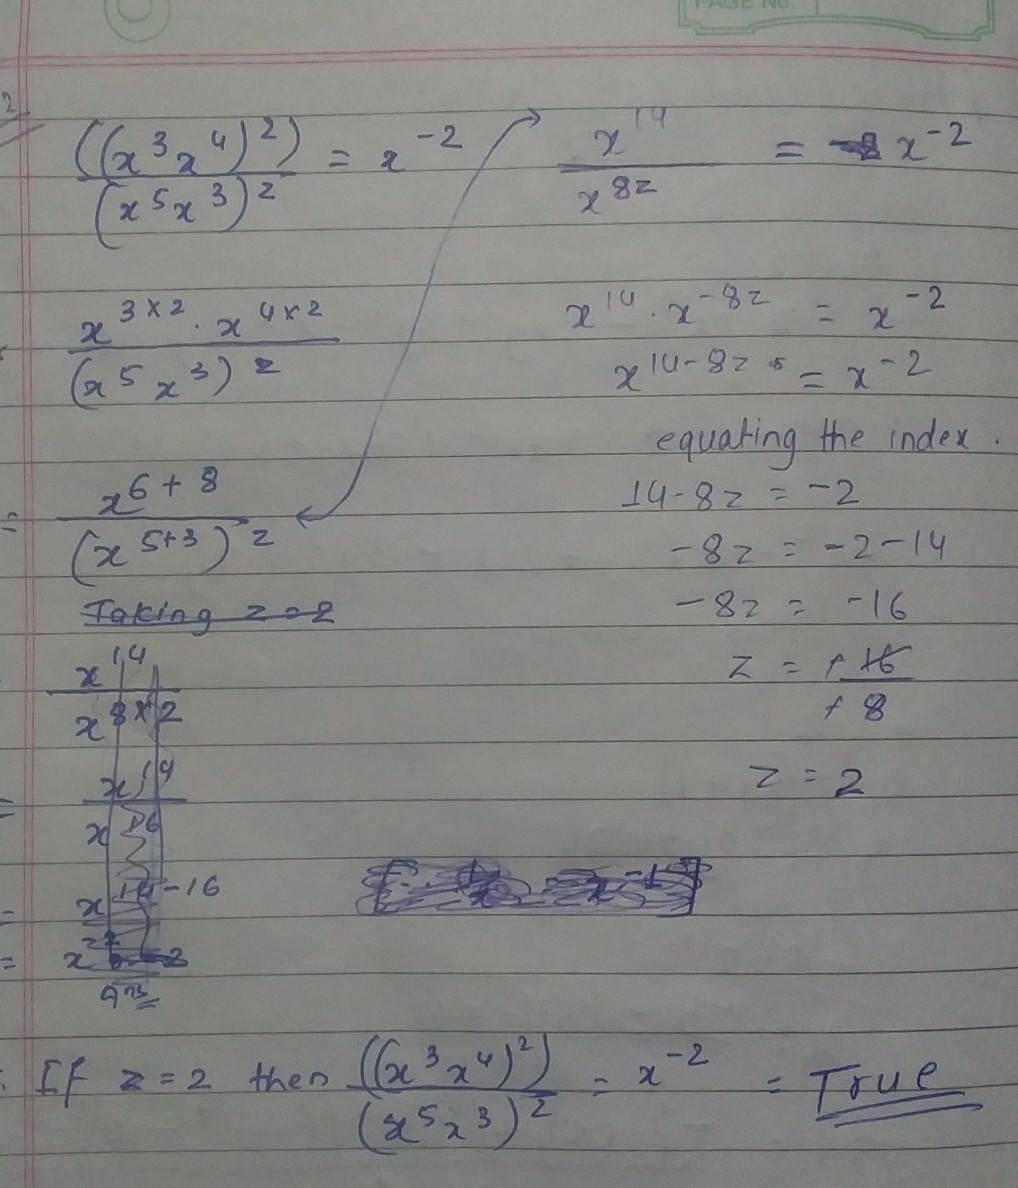 PAGE No.
2
((x³x⁴)²) / (x⁵x³)^z = x⁻²
x^(3×2) · x^(4×2) / (x⁵x³)^z
= x^(6+8) / (x^(5+3))^z
Taking z=2
x¹⁴ / x^(8×2)
= x¹⁴ / x¹⁶
= x^(14-16)
= x⁻²
Ans
x¹⁴ / x^(8z) = x⁻²
x¹⁴ . x^(-8z) = x⁻²
x^(14-8z) = x⁻²
equating the index.
14-8z = -2
-8z = -2-14
-8z = -16
z = +16 / +8
z = 2
If z=2 then ((x³x⁴)²) / (x⁵x³)² = x⁻² = True